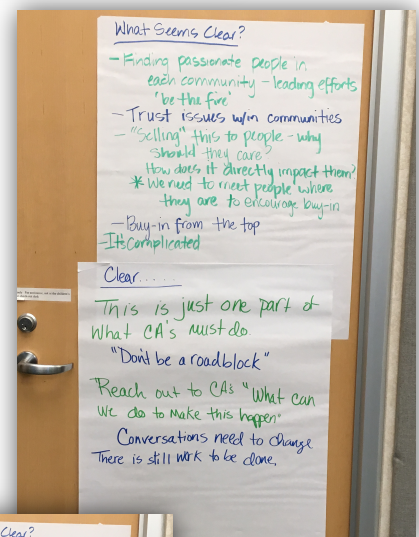 What Seems Clear?
- Finding passionate people in
each community - leading efforts
'be the fire'
- Trust issues w/in communities
- "Selling" this to people - why
should they care?
How does it directly impact them?
* We need to meet people where
they are to encourage buy-in
- Buy-in from the top
- It's complicated
Clear......
This is just one part of
what CA's must do.
"Don't be a roadblock"
"Reach out to CA's "What can
we do to make this happen"
Conversations need to change
There is still work to be done.
Clear?